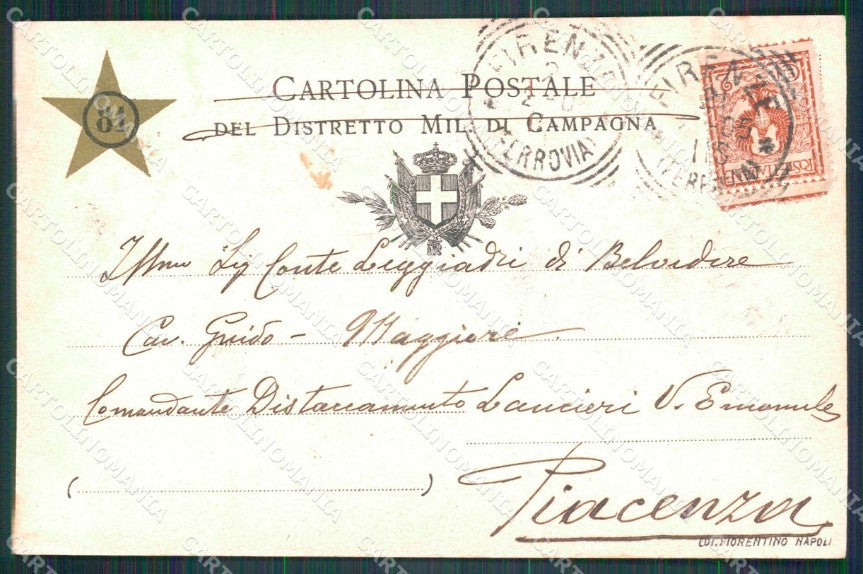 84
CARTOLINA POSTALE
DEL DISTRETTO MIL. DI CAMPAGNA
FIRENZE
(FERROVIA)
FIRENZE
Illmo Sig Conte Leggiadri di Belvidere
Cav. Guido - Maggiore.
Comandante Distaccamento Lancieri V. Emanuele
( )
Piacenza
EDI. FIORENTINO NAPOLI
CARTOLINOMANIA